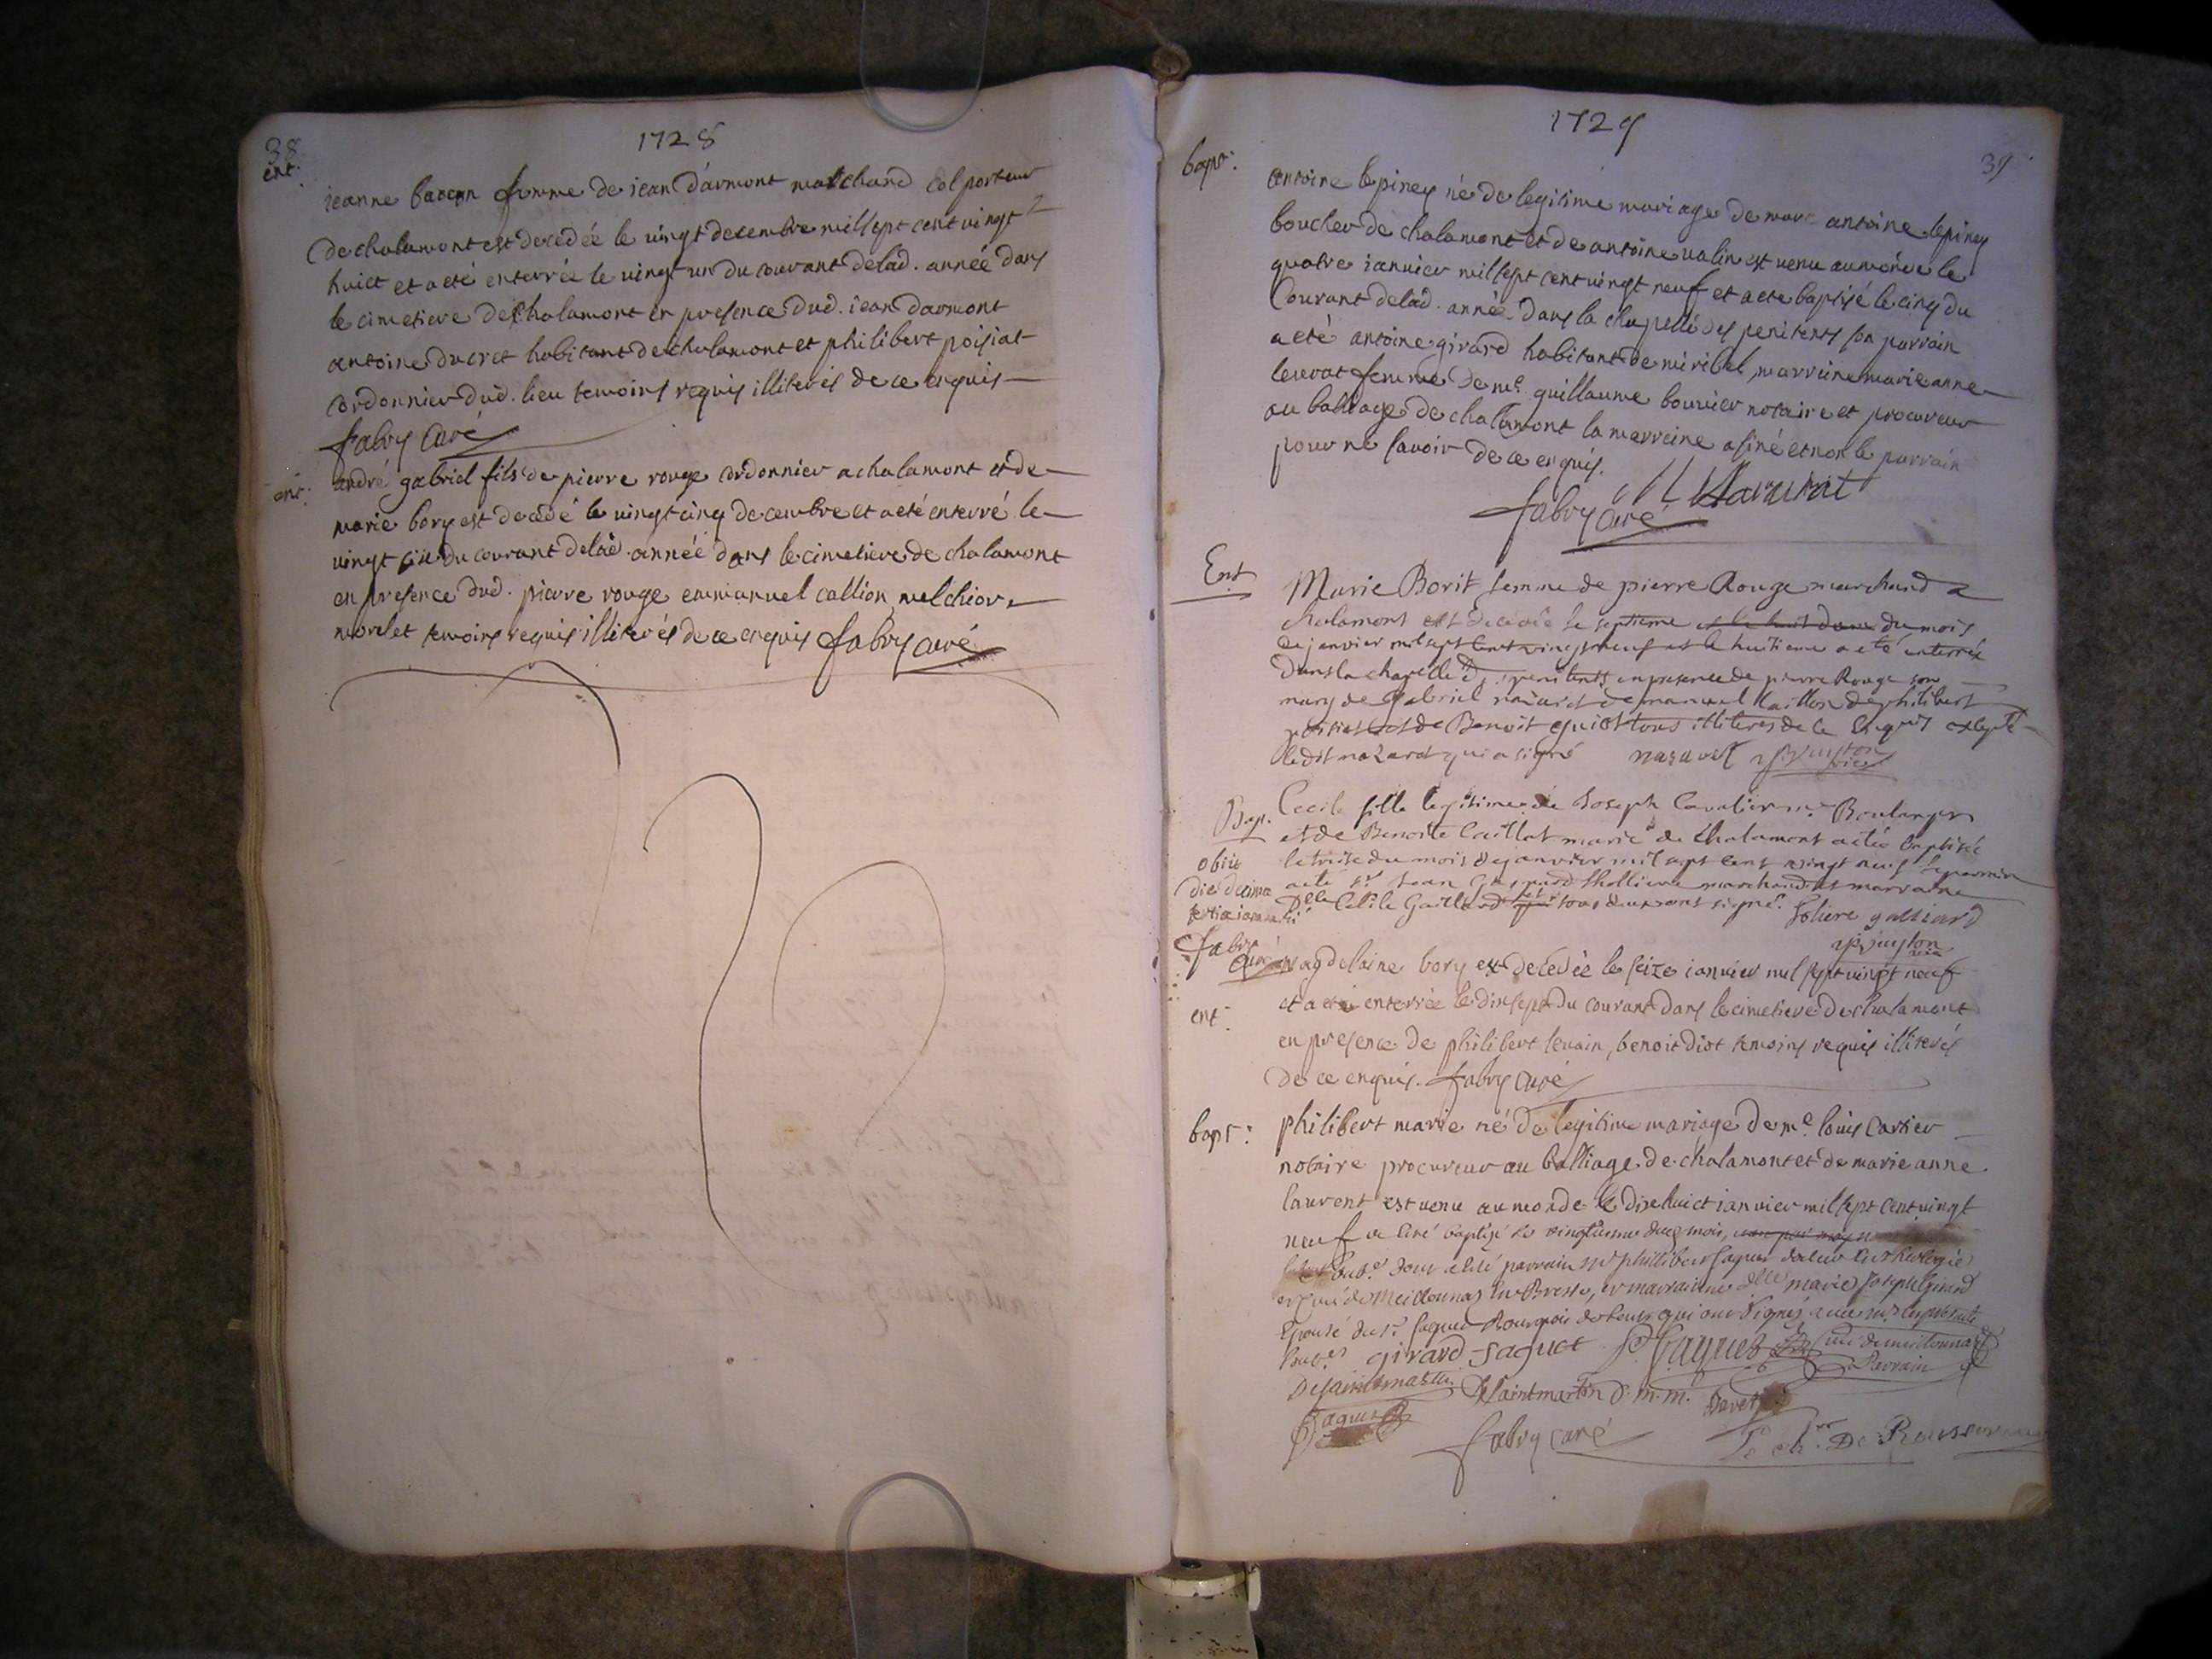 38
1728
ent.
jeanne femme de jean darmont marchand colporteur
de chalamont est decedée le vingt decembre mil sept cent vingt
huict et a eté enterrée le vingt un du courant de lad. année dans
le cimetiere de chalamont en presence dud. jean darmont
antoine ducret habitant de chalamont et philibert poisiat
cordonnier dud. lieu temoins requis illiterés de ce enquis
fabry curé
ent.
andré gabriel fils de pierre rouge cordonnier a chalamont et de
marie bory est decedé le vingt cinq decembre et a eté enterré le
vingt six du courant de lad. année dans le cimetiere de chalamont
en presence dud. pierre rouge emmanuel callion melchior
morlet temoins requis illiterés de ce enquis fabry curé
1729
39
bapt.
antoine lepiney né de legitime mariage de marc antoine lepiney
boucher de chalamont et de antoine valin est venu au monde le
quatre janvier mil sept cent vingt neuf et a eté baptisé le cinq du
courant de lad. année dans la chapelle des penitents son parrain
a eté antoine girard habitant de miribel, marreine marie anne
levrat femme de me. guillaume bouvier notaire et procureur
au balliage de chalamont la marreine a siné et non le parrain
pour ne savoir de ce enquis.
fabry curé
Ent
Marie Borit femme de pierre Rouge marchand a
chalamont est decedée le septieme du mois
de janvier mil sept cent vingt neuf et le huitieme a eté enterrée
dans la chapelle des penitents en presence de pierre Rouge son
mary de Gabriel nazaret demanuel Caillon de philibert
poisiat et de Benoit tous illiteres de ce enquis excepté
ledit nazaret qui a signé nazaret
Bap.
Cecile fille legitime de Joseph Cavalier me. Boulanger
et de Benoite Caillat marié de Chalamont a eté baptisée
le treise du mois de janvier mil sept cent vingt neuf le parrain
a eté sr. Jean Gaspard Thollieve marchand et marraine
Delle Cecile Gaillard tous deux ont signé. galliard
obiit
die decima
tertia januarii
fabry
curé
ent.
magdelaine bory est decedée le seize janvier mil sept vingt neuf
et a eté enterrée le dix sept du courant dans le cimetiere de chalamont
en presence de philibert levain, benoit diot temoins requis illiterés
de ce enquis. fabry curé
bapt:
philibert marie né de legitime mariage de me. louis cartier
notaire procureur au balliage de chalamont et de marie anne
laurent est venu au monde le dix huict janvier mil sept cent vingt
neuf a eté baptisé le vingtieme dud. mois,
a eté parrain Mr phillibert Jaquet docteur en theologie
et curé de Meillonnas en Bresse, et marraine delle marie Joseph Girard
Epouse du sr. Jaquet Bourgeois qui ont signés avec
girard-jaquet P. Jaquet curé de meillonnas
Parrain
Desaintmartin Desaintmartin D. m. m.
Jaquet
fabry curé Le chr. De